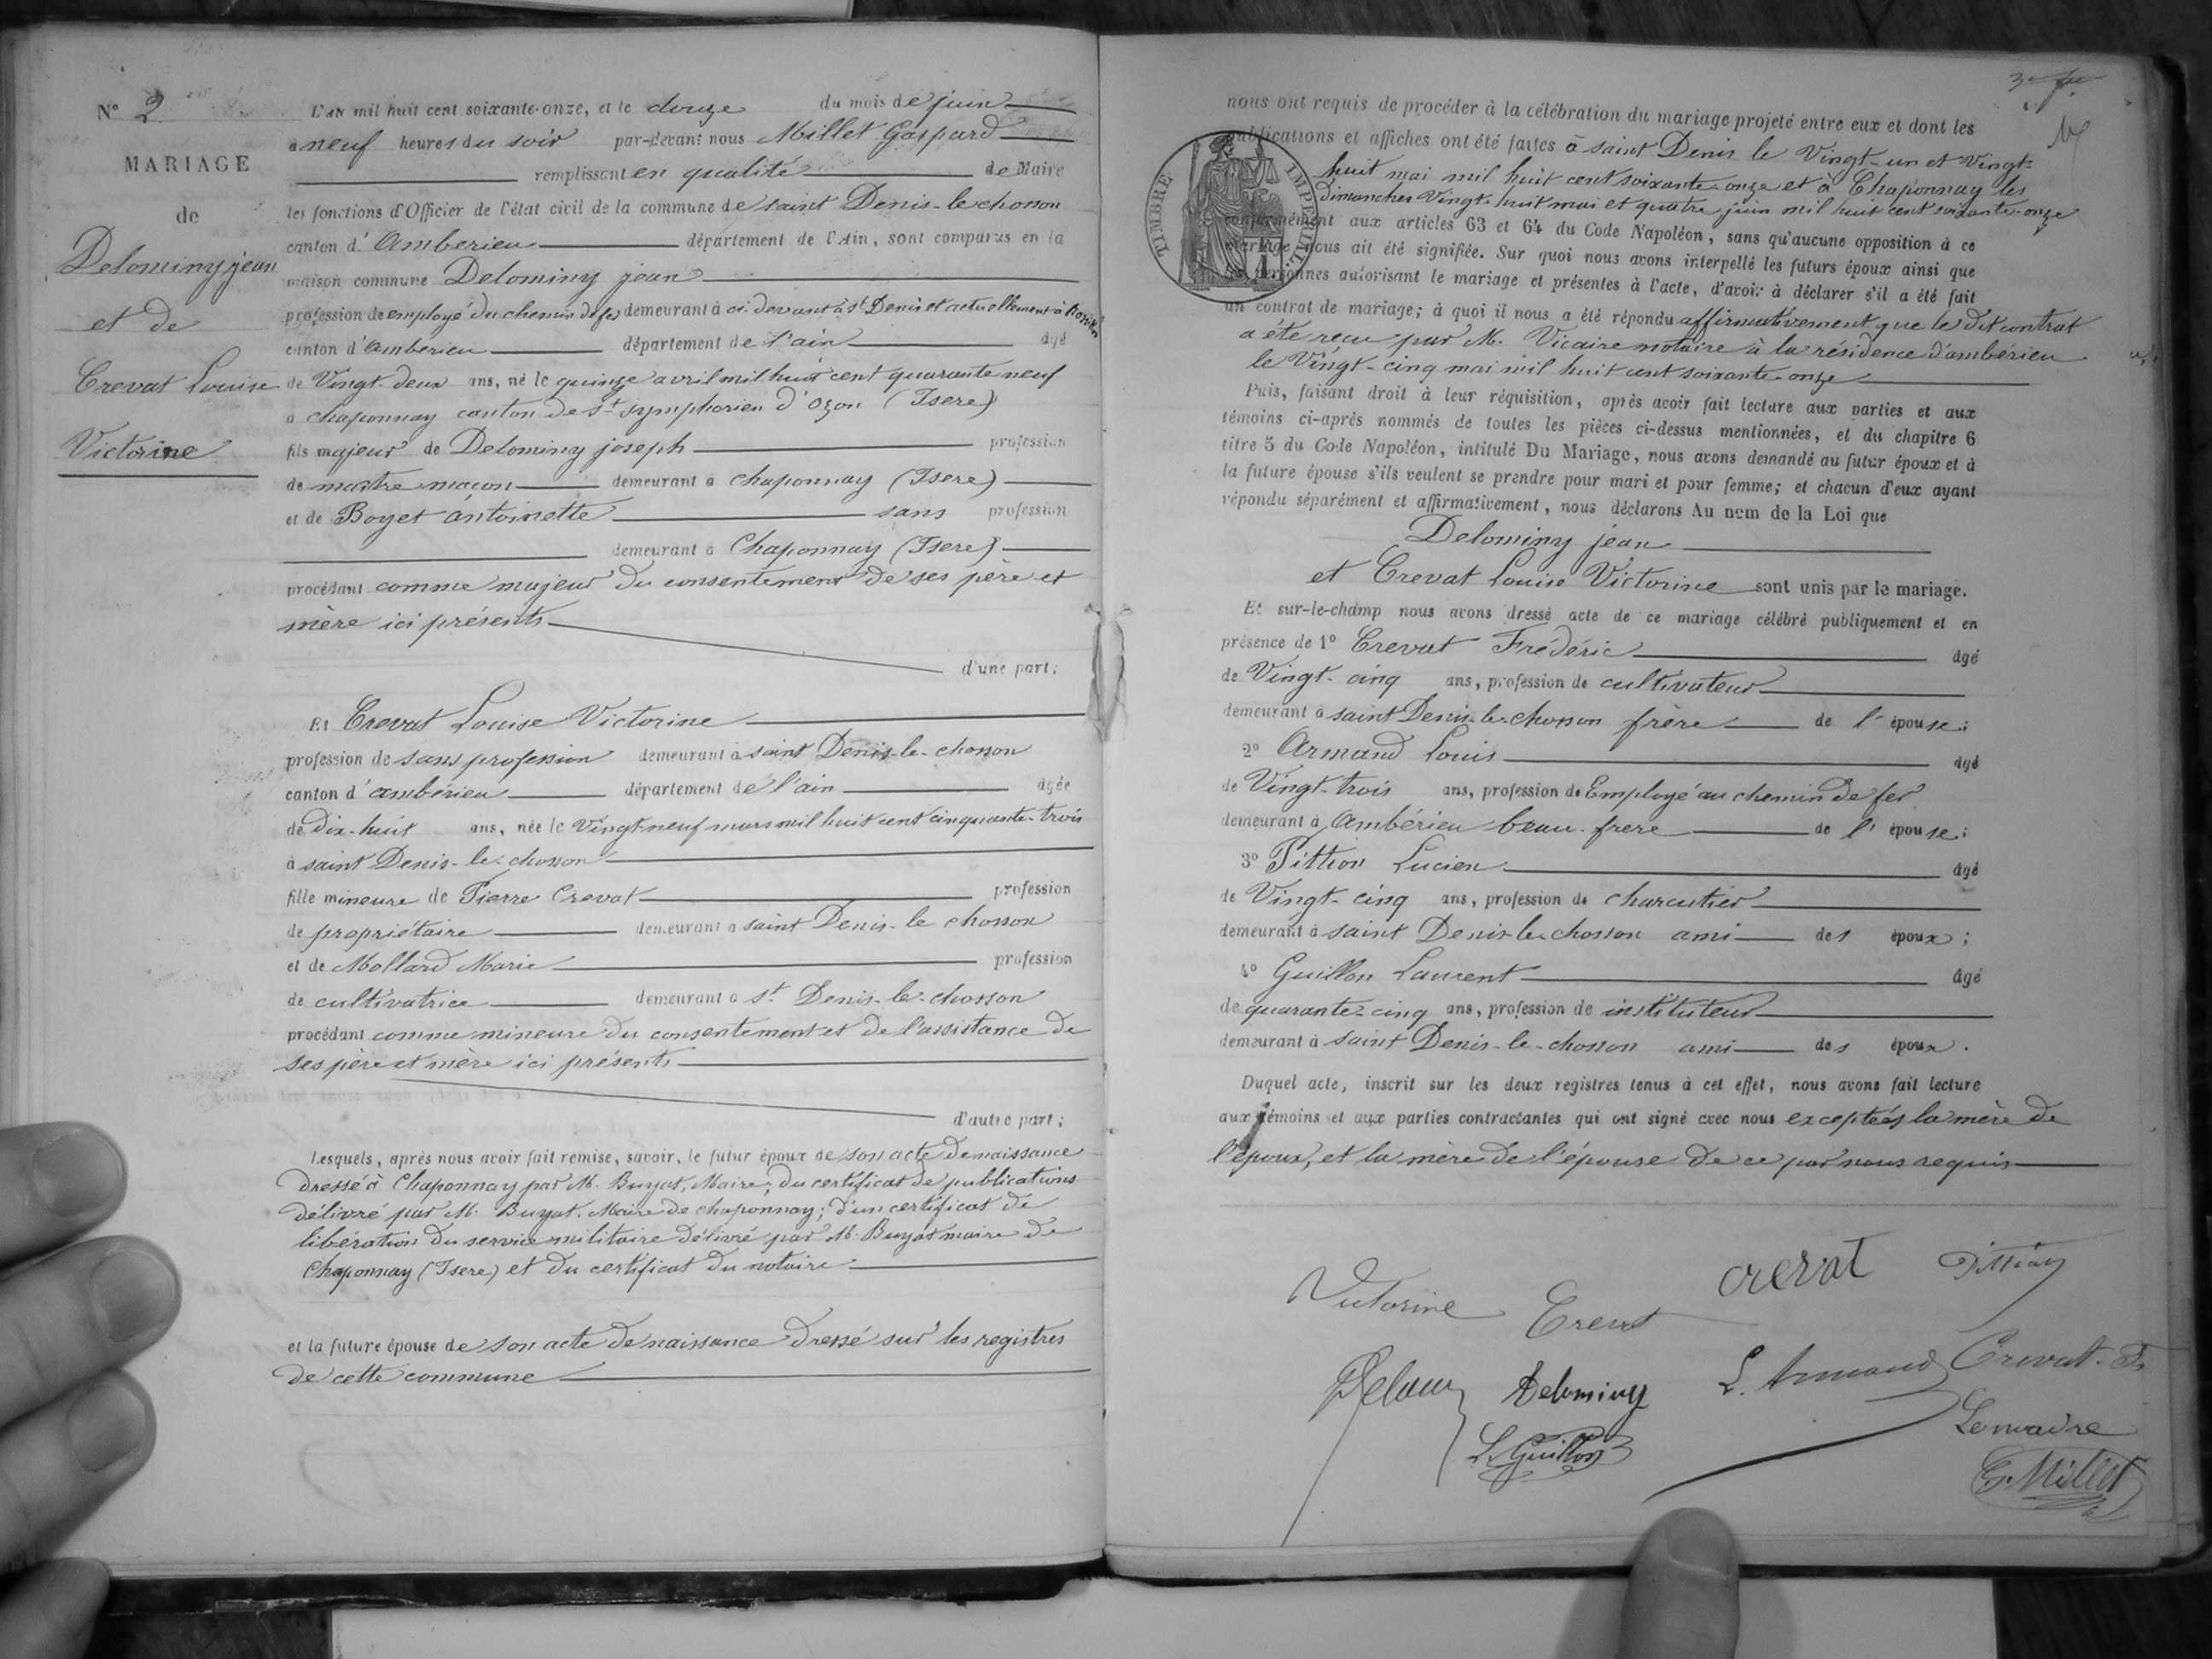 N° 2
MARIAGE
de
Delominy jean
et de
Crevat Louise
Victorine
L'an mil huit cent soixante-onze, et le douze du mois de juin
à neuf heures du soir par-devant nous Millet Gaspard
remplissant en qualité de Maire
les fonctions d'Officier de l'état civil de la commune de saint Denis-le-chosson
canton d'Amberieu département de l'Ain, sont comparus en la
maison commune Delominy jean
profession de employé du chemin de fer demeurant à ci-devant à st Denis et actuellement à
canton d'amberieu département de l'ain âgé
de Vingt-deux ans, né le quinze avril mil huit cent quarante neuf
à chaponnay canton de st symphorien d'ozon (Isere)
fils majeur de Delominy joseph profession
de maître maçon demeurant à chaponnay (Isere)
et de Boyet antoinette sans profession
demeurant à Chaponnay (Isere)
procédant comme majeur du consentement de ses père et
mère ici présents
d'une part;
Et Crevat Louise Victorine
profession de sans profession demeurant à saint Denis-le-chosson
canton d'ambérieu département de l'ain âgée
de dix-huit ans, née le Vingt-neuf mars mil huit cent cinquante-trois
à saint Denis-le-chosson
fille mineure de Pierre Crevat profession
de propriétaire demeurant à saint Denis-le chosson
et de Mollard Marie profession
de cultivatrice demeurant à st Denis-le-chosson
procédant comme mineure du consentement et de l'assistance de
ses père et mère ici présents
d'autre part;
Lesquels, après nous avoir fait remise, savoir, le futur époux de son acte de naissance
dressé à Chaponnay par M. Buyat, Maire; du certificat de publications
délivré par M. Buyat, Maire de chaponnay; d'un certificat de
libération du service militaire délivré par M. Buyat maire de
Chaponnay (Isere) et du certificat du notaire.
et la future épouse de son acte de naissance dressé sur les registres
de cette commune
nous ont requis de procéder à la célébration du mariage projeté entre eux et dont les
publications et affiches ont été faites à saint Denis le Vingt-un et Vingt-
huit mai mil huit cent soixante-onze et à Chaponnay les
dimanches Vingt-huit mai et quatre juin mil huit cent soixante-onze
TIMBRE IMPERIAL
conformément aux articles 63 et 64 du Code Napoléon, sans qu'aucune opposition à ce
mariage nous ait été signifiée. Sur quoi nous avons interpellé les futurs époux ainsi que
les personnes autorisant le mariage et présentes à l'acte, d'avoir à déclarer s'il a été fait
un contrat de mariage; à quoi il nous a été répondu affirmativement que le dit contrat
a été reçu par M. Vicaire notaire à la résidence d'ambérieu
le Vingt-cinq mai mil huit cent soixante-onze
Puis, faisant droit à leur réquisition, après avoir fait lecture aux parties et aux
témoins ci-après nommés de toutes les pièces ci-dessus mentionnées, et du chapitre 6
titre 5 du Code Napoléon, intitulé Du Mariage, nous avons demandé au futur époux et à
la future épouse s'ils veulent se prendre pour mari et pour femme; et chacun d'eux ayant
répondu séparément et affirmativement, nous déclarons Au nom de la Loi que
Delominy jean
et Crevat Louise Victorine sont unis par le mariage.
Et sur-le-champ nous avons dressé acte de ce mariage célébré publiquement et en
présence de 1° Crevat Frédéric âgé
de Vingt-cinq ans, profession de cultivateur
demeurant à saint Denis-le-chosson frère de l'épouse;
2° Armand Louis âgé
de Vingt-trois ans, profession de Employé au chemin de fer
demeurant à Ambérieu beau-frere de l'épouse;
3° Pittion Lucien âgé
de Vingt-cinq ans, profession de charcutier
demeurant à saint Denis-le-chosson ami des époux;
4° Guillon Laurent âgé
de quarante-cinq ans, profession de instituteur
demeurant à saint Denis-le-chosson ami des époux.
Duquel acte, inscrit sur les deux registres tenus à cet effet, nous avons fait lecture
aux témoins et aux parties contractantes qui ont signé avec nous exceptées la mère de
l'époux, et la mère de l'épouse de ce par nous requis
Victorine Crevat crevat Pittion
Delominy L. Armand Crevat. F
L. Guillon Lemadre
G. Millet